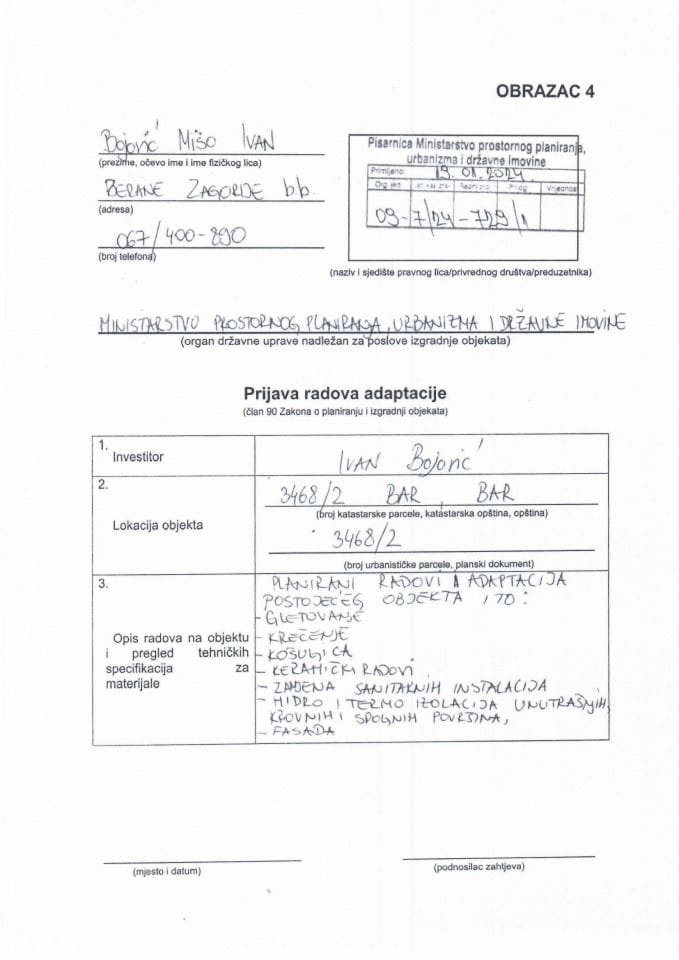 OBRAZAC 4
Bojović Mišo IVAN
(prezime, očevo ime i ime fizičkog lica)
BERANE ZAGORJE b.b.
(adresa)
067/400-890
(broj telefona)
Pisarnica Ministarstvo prostornog planiranja,
urbanizma i državne imovine
Primljeno: 19.01.2024.
Org. jed. Prilog Vrijednost
09-7/24-729/1
(naziv i sjedište pravnog lica/privrednog društva/preduzetnika)
MINISTARSTVO PROSTORNOG PLANIRANJA, URBANIZMA I DRŽAVNE IMOVINE
(organ državne uprave nadležan za poslove izgradnje objekata)
Prijava radova adaptacije
(član 90 Zakona o planiranju i izgradnji objekata)
1.
Investitor
IVAN Bojović
2.
Lokacija objekta
3468/2 BAR, BAR
(broj katastarske parcele, katastarska opština, opština)
3468/2
(broj urbanističke parcele, planski dokument)
3.
Opis radova na objektu
i pregled tehničkih
specifikacija za
materijale
PLANIRANI RADOVI ADAPTACIJA
POSTOJEĆEG OBJEKTA I TO:
- GLETOVANJE
- KREČENJE
- KOŠULJICA
- KERAMIČKI RADOVI
- ZAMJENA SANITARNIH INSTALACIJA
- HIDRO I TERMO IZOLACIJA UNUTRAŠNJIH,
KROVNIH I SPOLJNIH POVRŠINA,
- FASADA
(mjesto i datum)
(podnosilac zahtjeva)